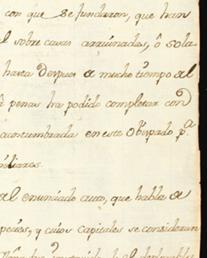 con que se fundaron, que han
l sobre casas arruinadas, ô sola
hasta despues de mucho tiempo al
è penas ha podido completar con
acostumbrada en este Obispado p.ª
miliares.
el enunciado auto, que habla de
peños, y cuios capitales se consideran